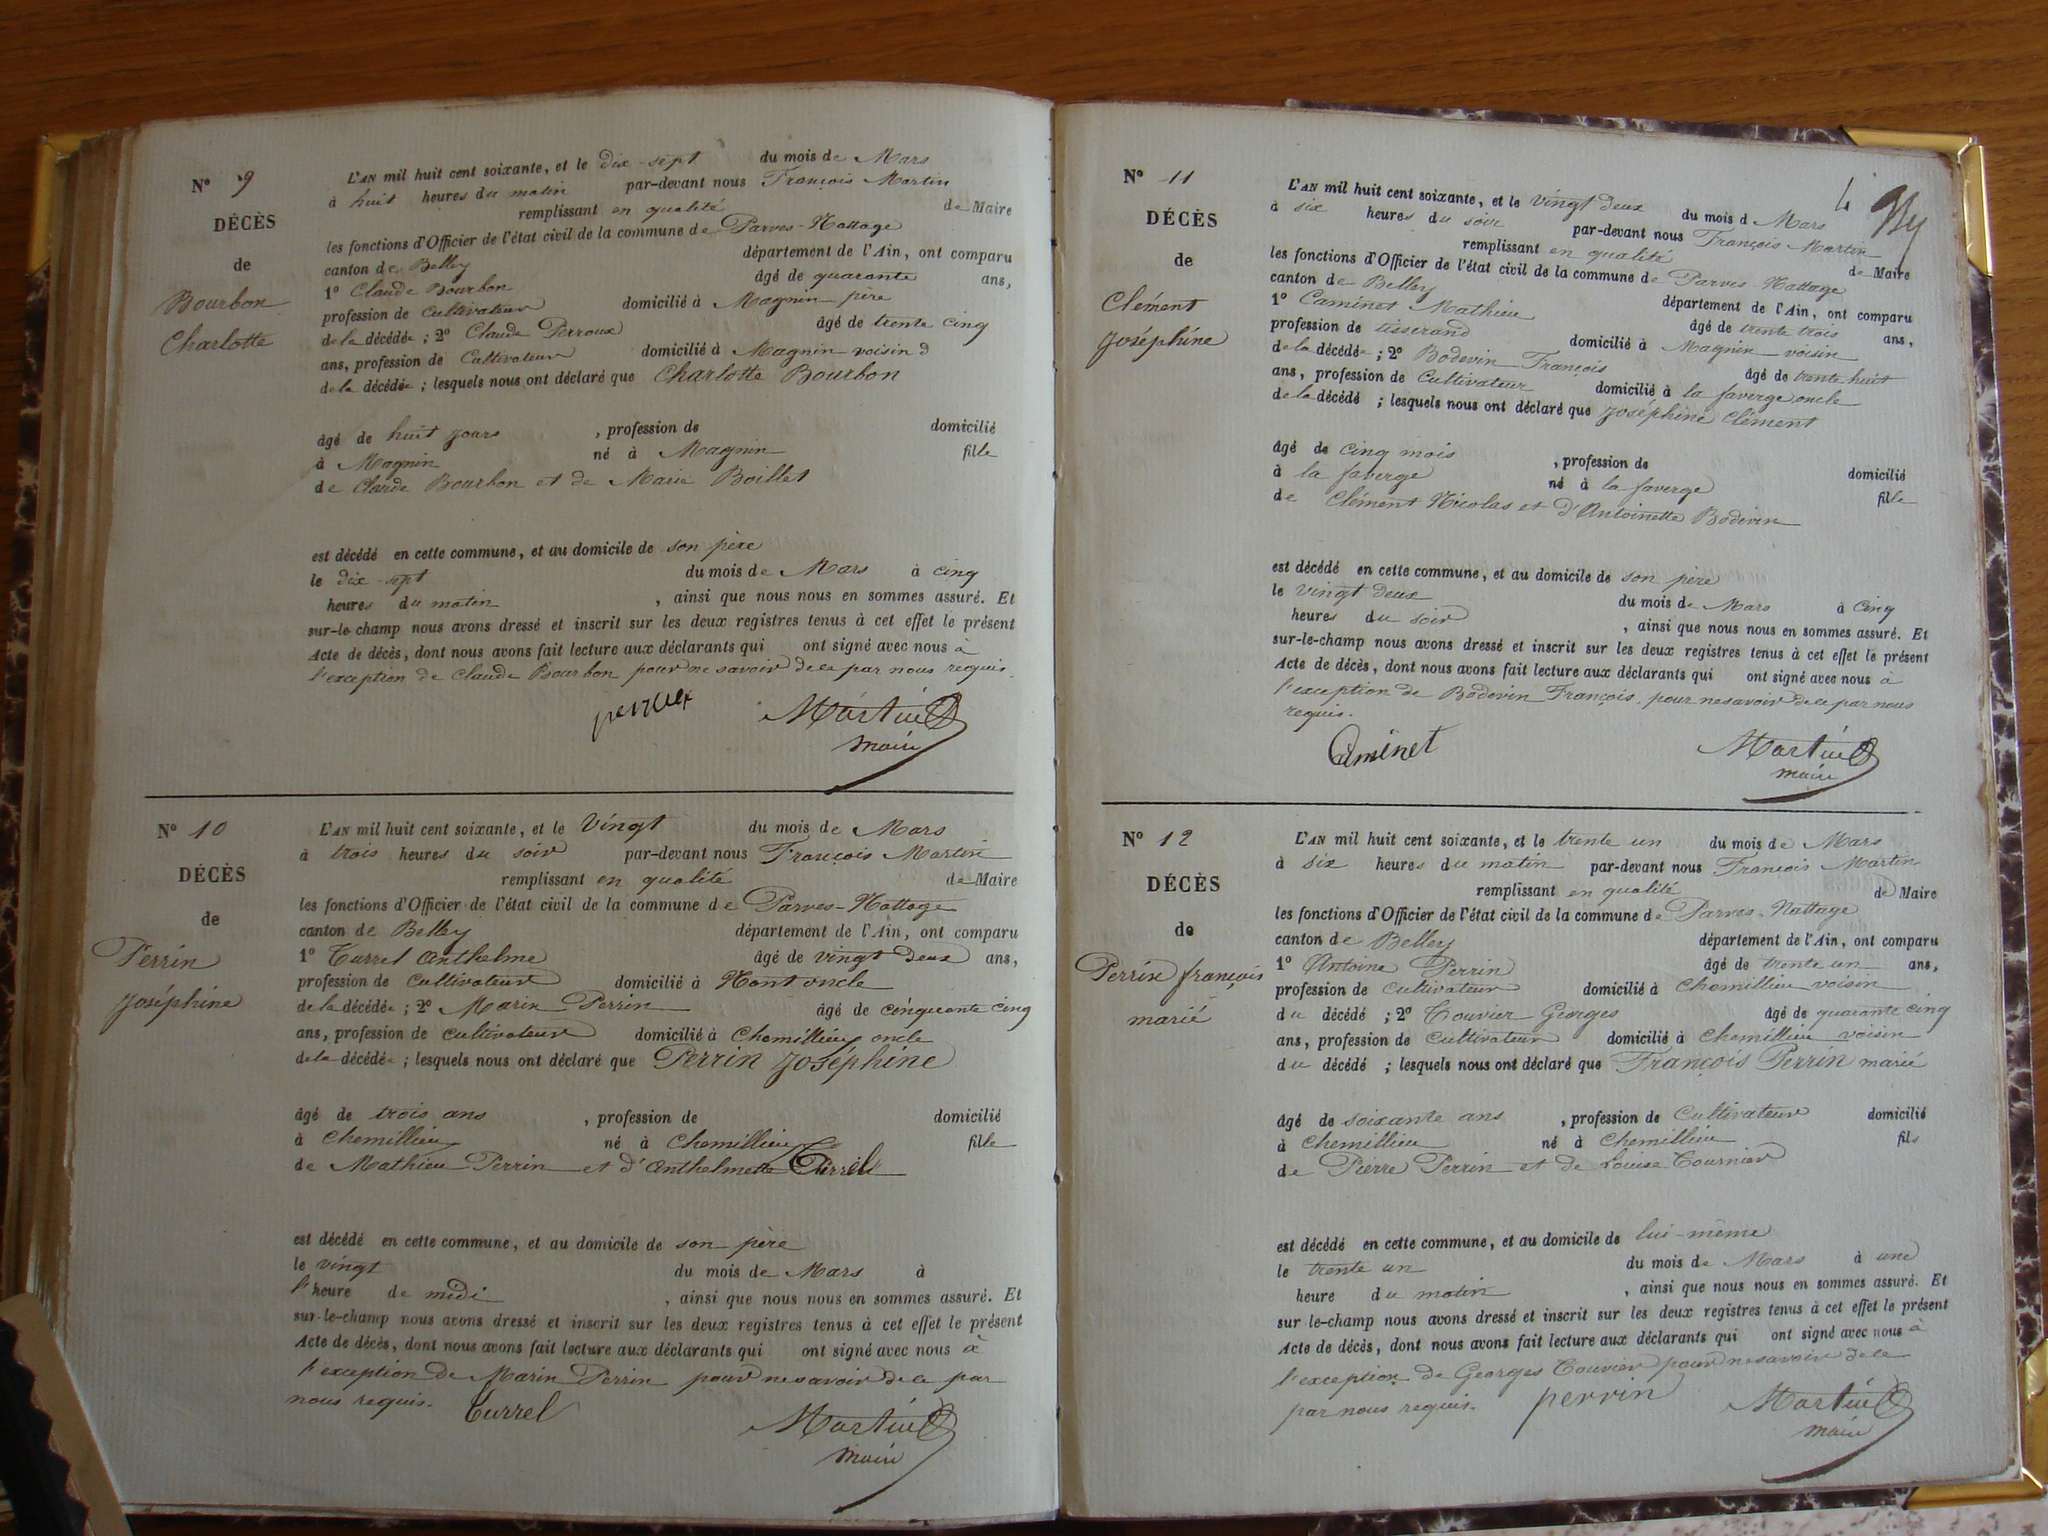 Nº 9
DÉCÈS
de
Bourbon
Charlotte
L'AN mil huit cent soixante, et le dix-sept du mois de Mars
à huit heures du matin par-devant nous François Martin
remplissant en qualité de Maire
les fonctions d'Officier de l'état civil de la commune de Parves-Nattage
canton de Belley département de l'Ain, ont comparu
1º Claude Bourbon âgé de quarante ans,
profession de Cultivateur domicilié à Magnin père
de la décédée ; 2º Claude Perroux âgé de trente cinq
ans, profession de Cultivateur domicilié à Magnin voisin
de la décédée ; lesquels nous ont déclaré que Charlotte Bourbon
âgé de huit jours , profession de domicilié
à Magnin né à Magnin fille
de Claude Bourbon et de Marie Boillet
est décédé en cette commune, et au domicile de son père
le dix-sept du mois de Mars à cinq
heures du matin , ainsi que nous nous en sommes assuré. Et
sur-le-champ nous avons dressé et inscrit sur les deux registres tenus à cet effet le présent
Acte de décès, dont nous avons fait lecture aux déclarants qui ont signé avec nous à
l'exception de Claude Bourbon pour ne savoir de ce par nous requis.
Martin
maire
Nº 10
DÉCÈS
de
Perrin
Joséphine
L'AN mil huit cent soixante, et le Vingt du mois de Mars
à trois heures du soir par-devant nous François Martin
remplissant en qualité de Maire
les fonctions d'Officier de l'état civil de la commune de Parves-Nattage
canton de Belley département de l'Ain, ont comparu
1º Turrel Anthelme âgé de vingt deux ans,
profession de Cultivateur domicilié à Nant oncle
de la décédée ; 2º Marin Perrin âgé de cinquante cinq
ans, profession de cultivateur domicilié à Chemillieu oncle
de la décédée ; lesquels nous ont déclaré que Perrin Joséphine
âgé de trois ans , profession de domicilié
à Chemillieu né à Chemillieu fille
de Mathieu Perrin et d'Anthelmette Turrel
est décédé en cette commune, et au domicile de son père
le vingt du mois de Mars à
l'heure de midi , ainsi que nous nous en sommes assuré. Et
sur-le-champ nous avons dressé et inscrit sur les deux registres tenus à cet effet le présent
Acte de décès, dont nous avons fait lecture aux déclarants qui ont signé avec nous à
l'exception de Marin Perrin pour ne savoir de ce par
nous requis. Turrel
Martin
maire
Nº 11
DÉCÈS
de
Clément
Joséphine
4
L'AN mil huit cent soixante, et le vingt deux du mois d Mars
à six heures du soir par-devant nous François Martin
remplissant en qualité de Maire
les fonctions d'Officier de l'état civil de la commune de Parves-Nattage
canton de Belley département de l'Ain, ont comparu
1º Caminet Mathieu âgé de trente trois ans,
profession de tisserand domicilié à Magnin voisin
de la décédée ; 2º Bodevin François âgé de trente huit
ans, profession de Cultivateur domicilié à la faverge oncle
de la décédé ; lesquels nous ont déclaré que Joséphine Clément
âgé de cinq mois , profession de domicilié
à la faverge né à la faverge fille
de Clément Nicolas et d'Antoinette Bodevin
est décédé en cette commune, et au domicile de son père
le vingt deux du mois de Mars à cinq
heures du soir , ainsi que nous nous en sommes assuré. Et
sur-le-champ nous avons dressé et inscrit sur les deux registres tenus à cet effet le présent
Acte de décès, dont nous avons fait lecture aux déclarants qui ont signé avec nous à
l'exception de Bodevin François pour ne savoir de ce par nous
requis.
Caminet Martin
maire
Nº 12
DÉCÈS
de
Perrin françois
marié
L'AN mil huit cent soixante, et le trente un du mois de Mars
à six heures du matin par-devant nous François Martin
remplissant en qualité de Maire
les fonctions d'Officier de l'état civil de la commune de Parves-Nattage
canton de Belley département de l'Ain, ont comparu
1º Antoine Perrin âgé de trente un ans,
profession de cultivateur domicilié à Chemillieu voisin
du décédé ; 2º Touvier Georges âgé de quarante cinq
ans, profession de Cultivateur domicilié à Chemillieu voisin
du décédé ; lesquels nous ont déclaré que François Perrin marié
âgé de soixante ans , profession de Cultivateur domicilié
à Chemillieu né à Chemillieu fils
de Pierre Perrin et de Louise Tournier
est décédé en cette commune, et au domicile de lui-même
le trente un du mois de Mars à une
heure du matin , ainsi que nous nous en sommes assuré. Et
sur-le-champ nous avons dressé et inscrit sur les deux registres tenus à cet effet le présent
Acte de décès, dont nous avons fait lecture aux déclarants qui ont signé avec nous à
l'exception de Georges Touvier pour ne savoir de ce
par nous requis. perrin Martin
maire